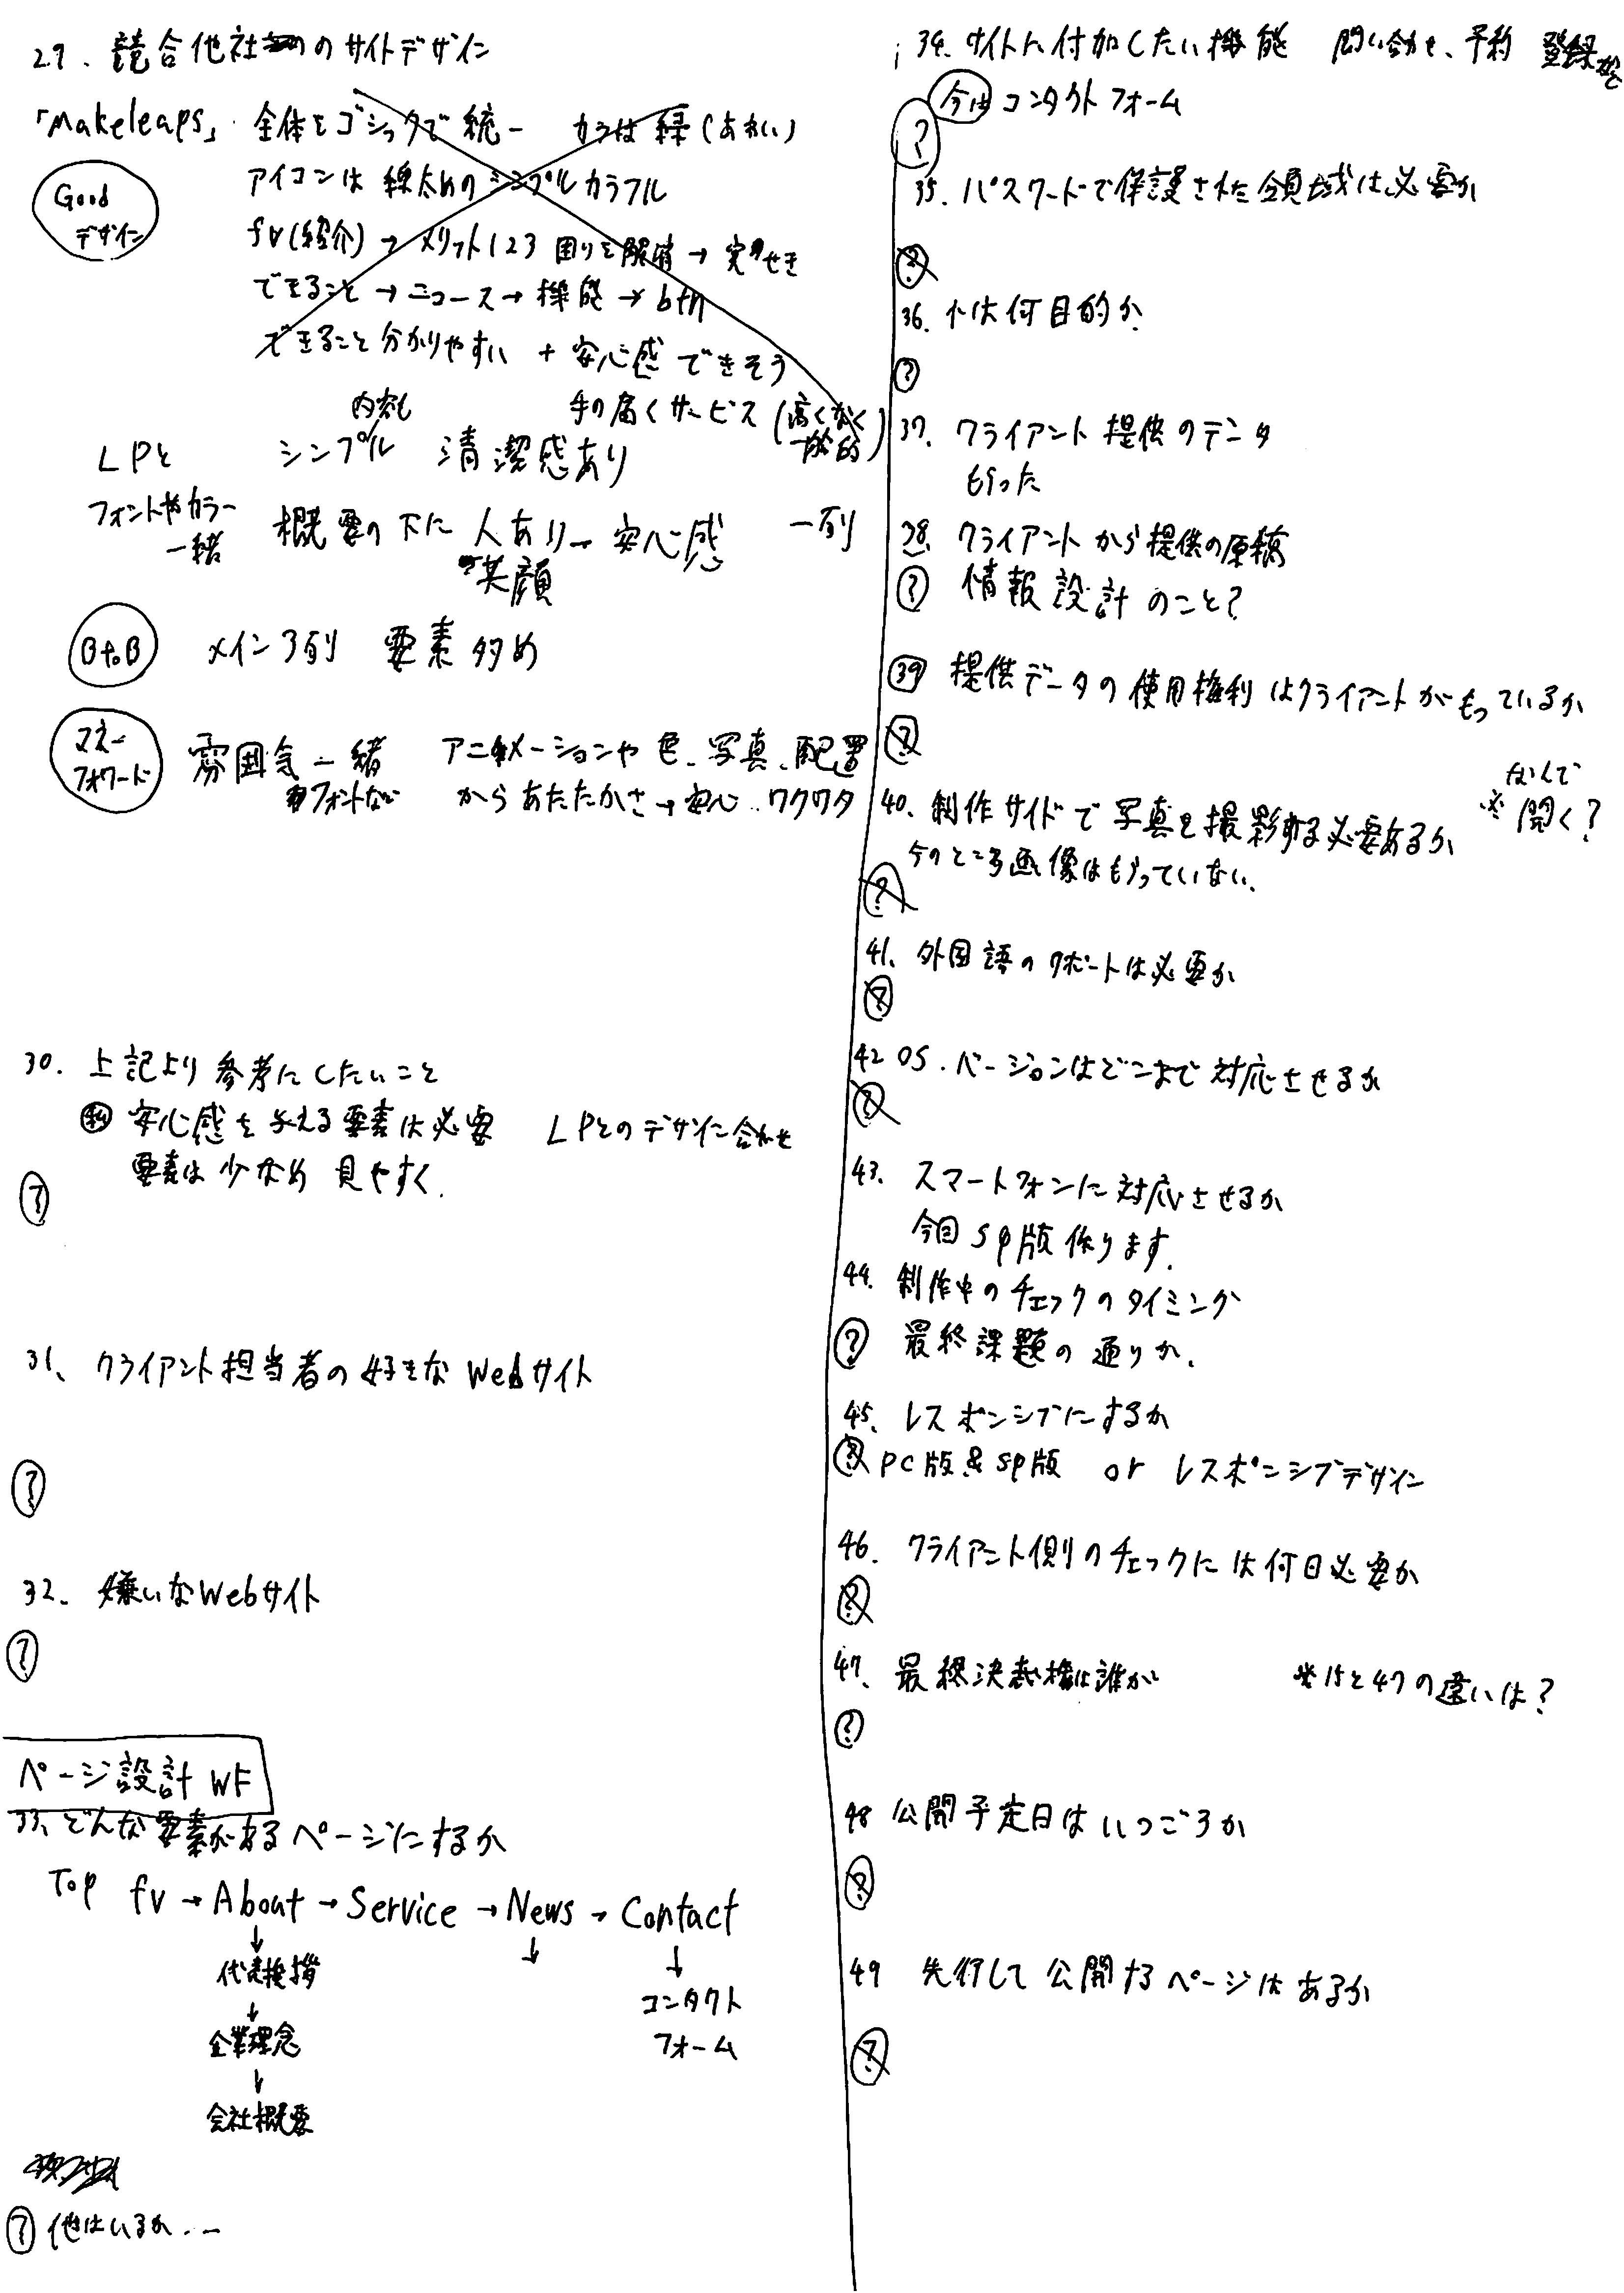 29. 競合他社のサイトデザイン
「Makeleaps」 全体をゴシックで統一 カラーは緑(あかい)
Good
デザイン
アイコンは線太めのシンプルカラフル
fv(紹介)→メリット123 困りを解消→実せき
できること→ニュース→機能→btn
できること分かりやすい + 安心感 できそう
手の届くサービス(高くなく
一般的)
内容も
LPと シンプル 清潔感あり
フォントやカラー
一緒
概要の下に人あり→安心感 一列
笑顔
BtoB メイン3列 要素多め
マネー
フォワード
雰囲気一緒 アニメーションや色、写真、配置
フォントなど からあたたかさ→安心 ワクワク
30. 上記より参考にしたいこと
安心感を与える要素は必要 LPとのデザイン合わせ
要素は少なめ 見やすく.
?
31、クライアント担当者の好きなWebサイト
?
32、嫌いなWebサイト
?
ページ設計 WF
33、どんな要素があるページにするか
Top fv→About→Service→News→Contact
↓ ↓ ↓
代表挨拶
↓
企業理念
↓
会社概要
コンタクト
フォーム
? 他はいるか...
34. サイトに付加したい機能 問い合わせ、予約 登録など
今は コンタクトフォーム
?
35. パスワードで保護された領域は必要か
?
36. ↑は何目的か
?
37. クライアント提供のデータ
もらった
38. クライアントから提供の原稿
? 情報設計のこと?
39 提供データの使用権利はクライアントがもっているか
?
40. 制作サイドで写真を撮影する必要あるか
※なんで
聞く?
今のところ画像はもらっていない.
?
41、外国語のサポートは必要か
?
42 OS.バージョンはどこまで対応させるか
?
43. スマートフォンに対応させるか
今回sp版作ります.
44. 制作中のチェックのタイミング
? 最終課題の通りか.
45、レスポンシブにするか
? pc版&sp版 or レスポンシブデザイン
46. クライアント側のチェックには何日必要か
?
47、最終決裁権は誰か ※15と47の違いは?
?
48 公開予定日はいつごろか
?
49 先行して公開するページはあるか
?